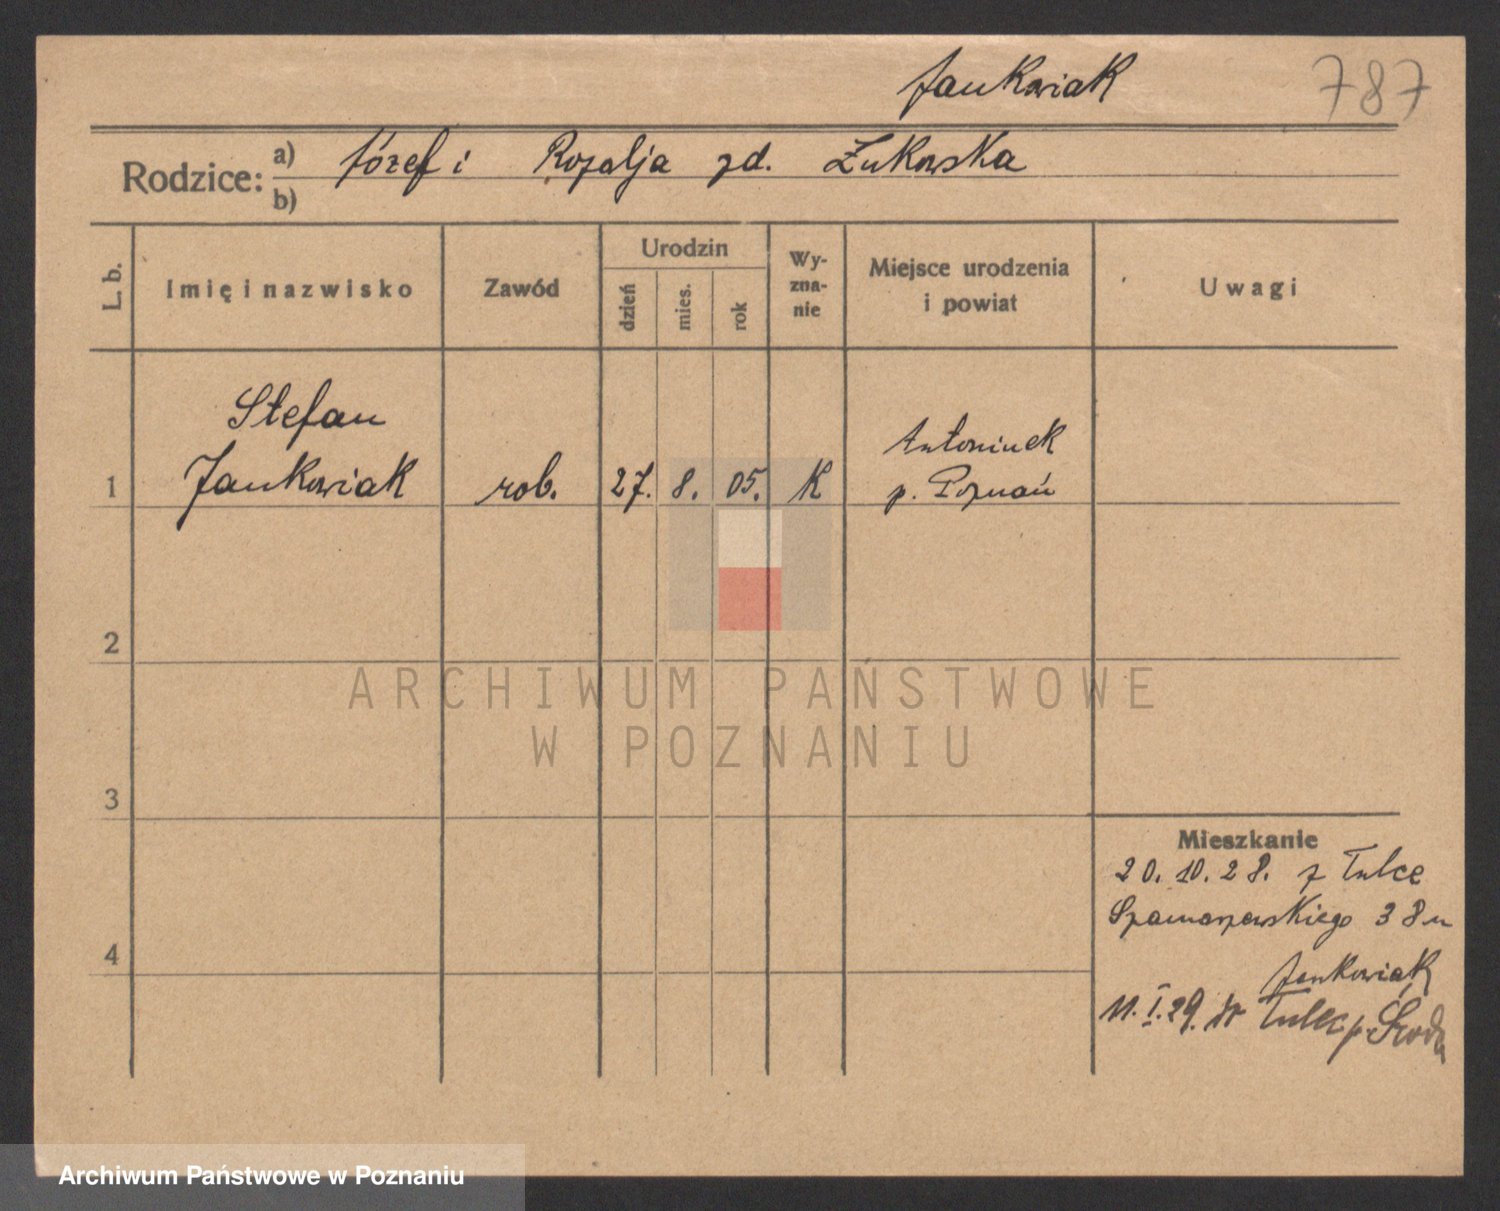 Jankowiak
787
Rodzice:
a) Józef i Rozalja zd. Żukowska
b)
L. b.
Imię i nazwisko
Zawód
Urodzin
dzień
mies.
rok
Wy-
zna-
nie
Miejsce urodzenia
i powiat
Uwagi
Stefan
Jankowiak
1
rob.
27.
8.
05.
K
Antoninek
p. Poznań
2
3
4
Mieszkanie
20. 10. 28. z Tulce
Szamarzewskiego 38
Jankowiak
11. I. 29. Tulce p. Środa
ARCHIWUM PAŃSTWOWE
W POZNANIU
Archiwum Państwowe w Poznaniu